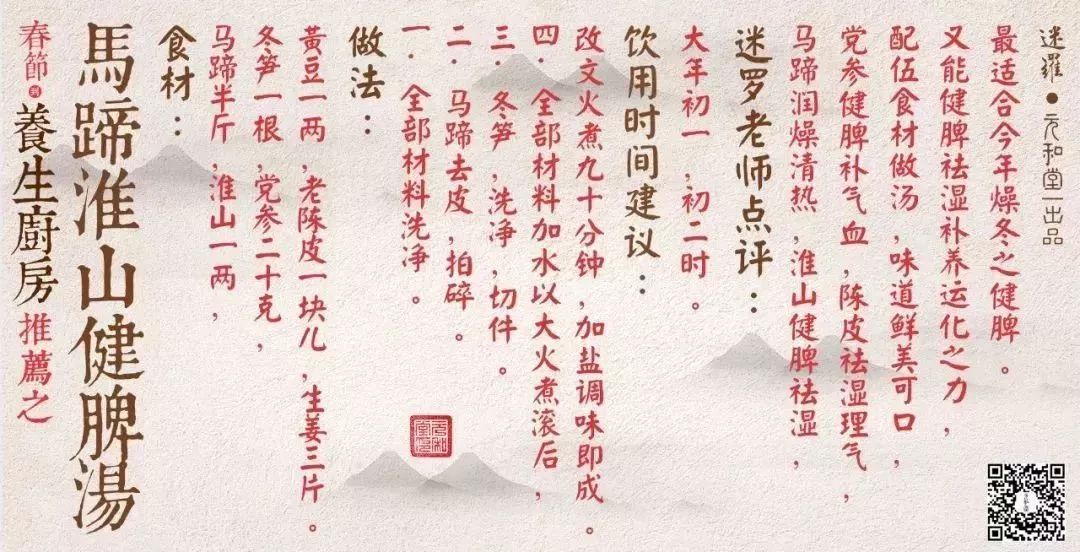 春節養生廚房推薦之
馬蹄淮山健脾湯
食材：
马蹄半斤，淮山一两，
冬笋一根，党参二十克，
黃豆一两，老陈皮一块儿，生姜三片。
做法：
一．全部材料洗净。
二．马蹄去皮，拍碎。
三．冬笋，洗净，切件。
四．全部材料加水以大火煮滚后，
改文火煮九十分钟，加盐调味即成。
饮用时间建议：
大年初一，初二时。
迷罗老师点评：
马蹄润燥清热，淮山健脾祛湿，
党参健脾补气血，陈皮祛湿理气，
配伍食材做汤，味道鲜美可口，
又能健脾祛湿补养运化之力，
最适合今年燥冬之健脾。
迷羅•元和堂一出品